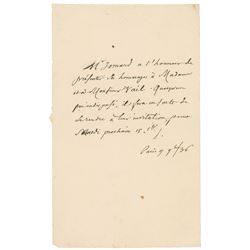 Mr Jomard a l'honneur de
présenter ses hommages à Madame
et à Monsieur Vail. Quoique
indisposé, il fera en sorte de
se rendre à leur invitation, pour
Mardi prochain 15
Paris 9 9bre/36